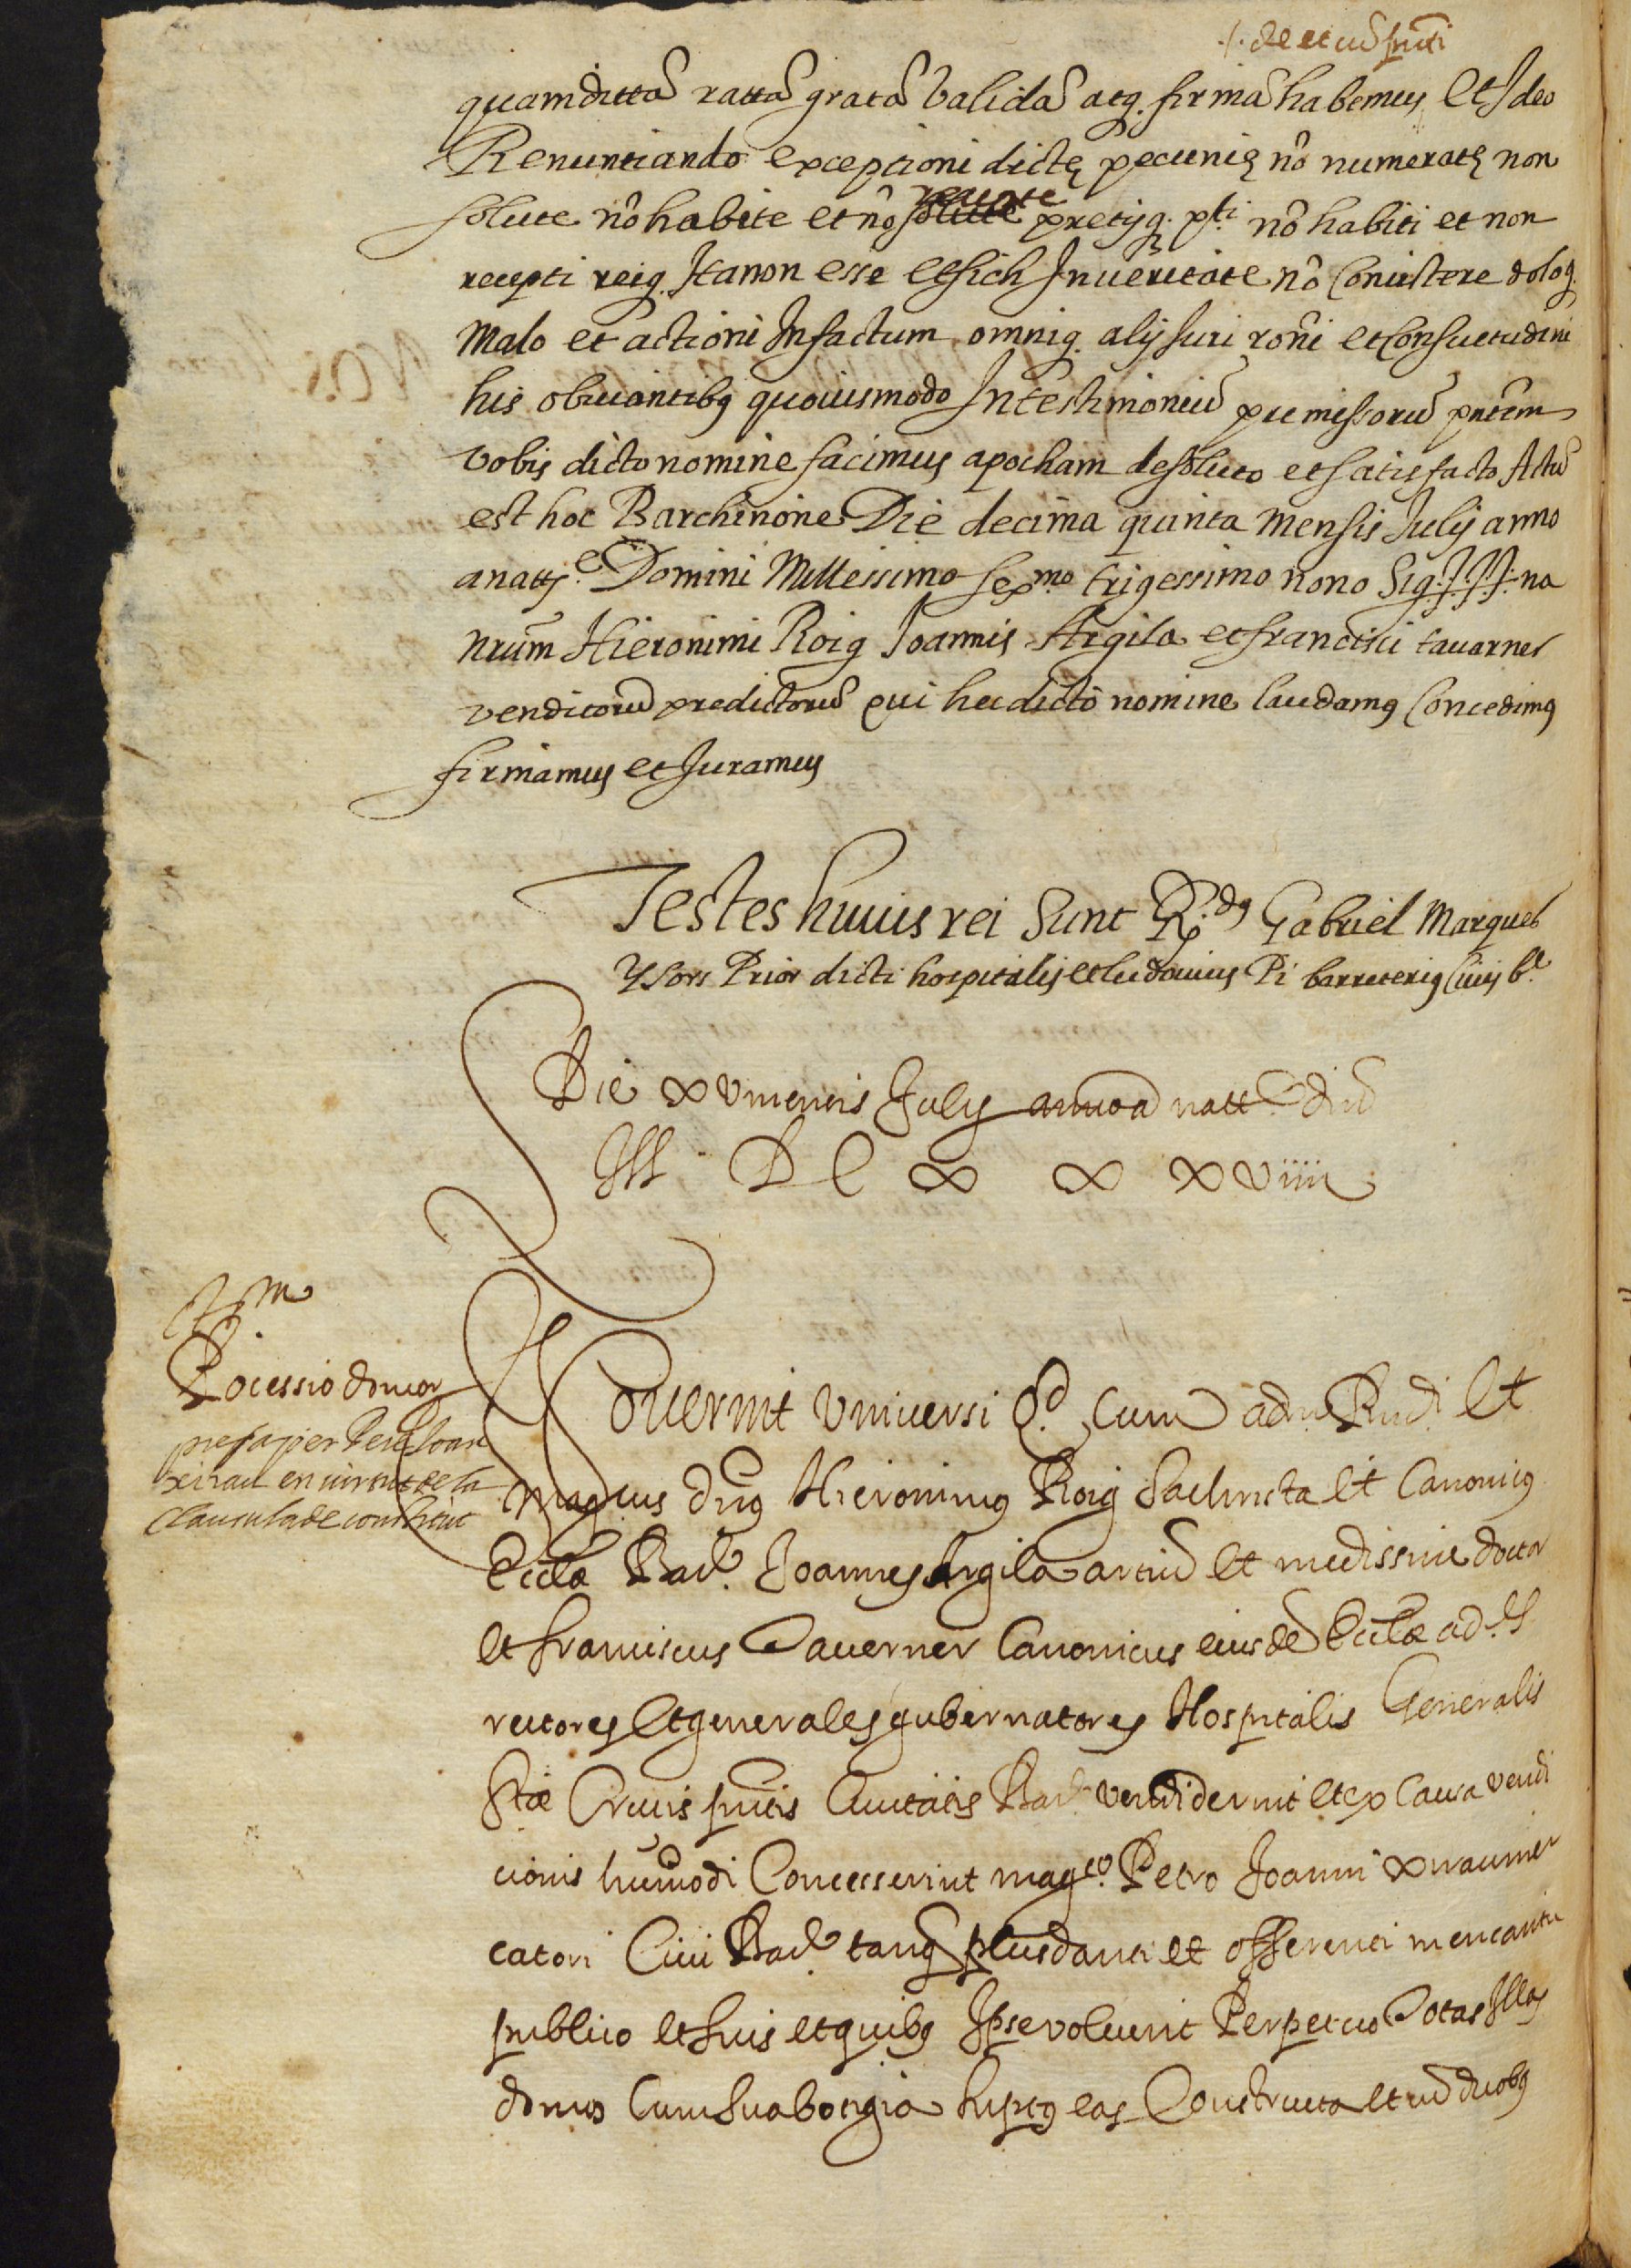 ./. de et cũ
quamdictã rattã gratã validã atq. firmã habemus Et Ideo
Renuntiando exceptioni dictę pecunię nõ numeratę non
solute nõ habite et nõ solute recepte pretijq. pti. nõ habiti et non
recepti reiq. Ita non esse et sich In veritate nõ Consistere doloq.
Malo et actioni Infactum omniq. alij Juri rõni et Consuetudini
his obviantibq quovismodo In testimoniũ premissorũ pntem
vobis dicto nomine facimus apocham de soluto et satisfacto Actũ
est hoc Barchinone Die decima quinta mensis Julij anno
a natte. Domini Millessimo sexmo. trigessimo nono Sig.†.†.†.na
nrum Hieronimi Roig Joannis Argila et francisci tavarner
venditorũ predictorũ qui hec dicto nomine laudamq Concedimq
firmamus et Juramus
Testes huius rei Sunt Rdq. Gabriel Marques
Ysors Prior dicti hospitalis et ludovicus Pi barreteriq Civis be.
Die xv mensis Julij anno a natte. dni
M D C x x xviiii
Possessio domor
presa per Pere Joan
xirau en virtut de la
Clausula de constitut
Noverint Universi qd. Cum admo Rndi Et
Magcus dnq Hieronimus Roig Sachrista et Canonicq
Ecclæ Bar. Joannes Argila artiũ et medissine doctor
et franciscus Taverner Canonicus eiusdẽ Ecclæ ad.
rectores Et generales gubernatores Hospitalis Generalis
Stæ Crucis pntis Civitatis Bar. vendiderint et ex Causa vendi
cionis huiusmodi Concesserint magco. Petro Joanni xirau mer
catori Civi Bar. tanq plus danti et offerenti in encantu
publico et suis et quibq Ipse voluerit Perpetuo Totas Illas
domos Cum sua botigia subtq eas Constructa et cũ duobq